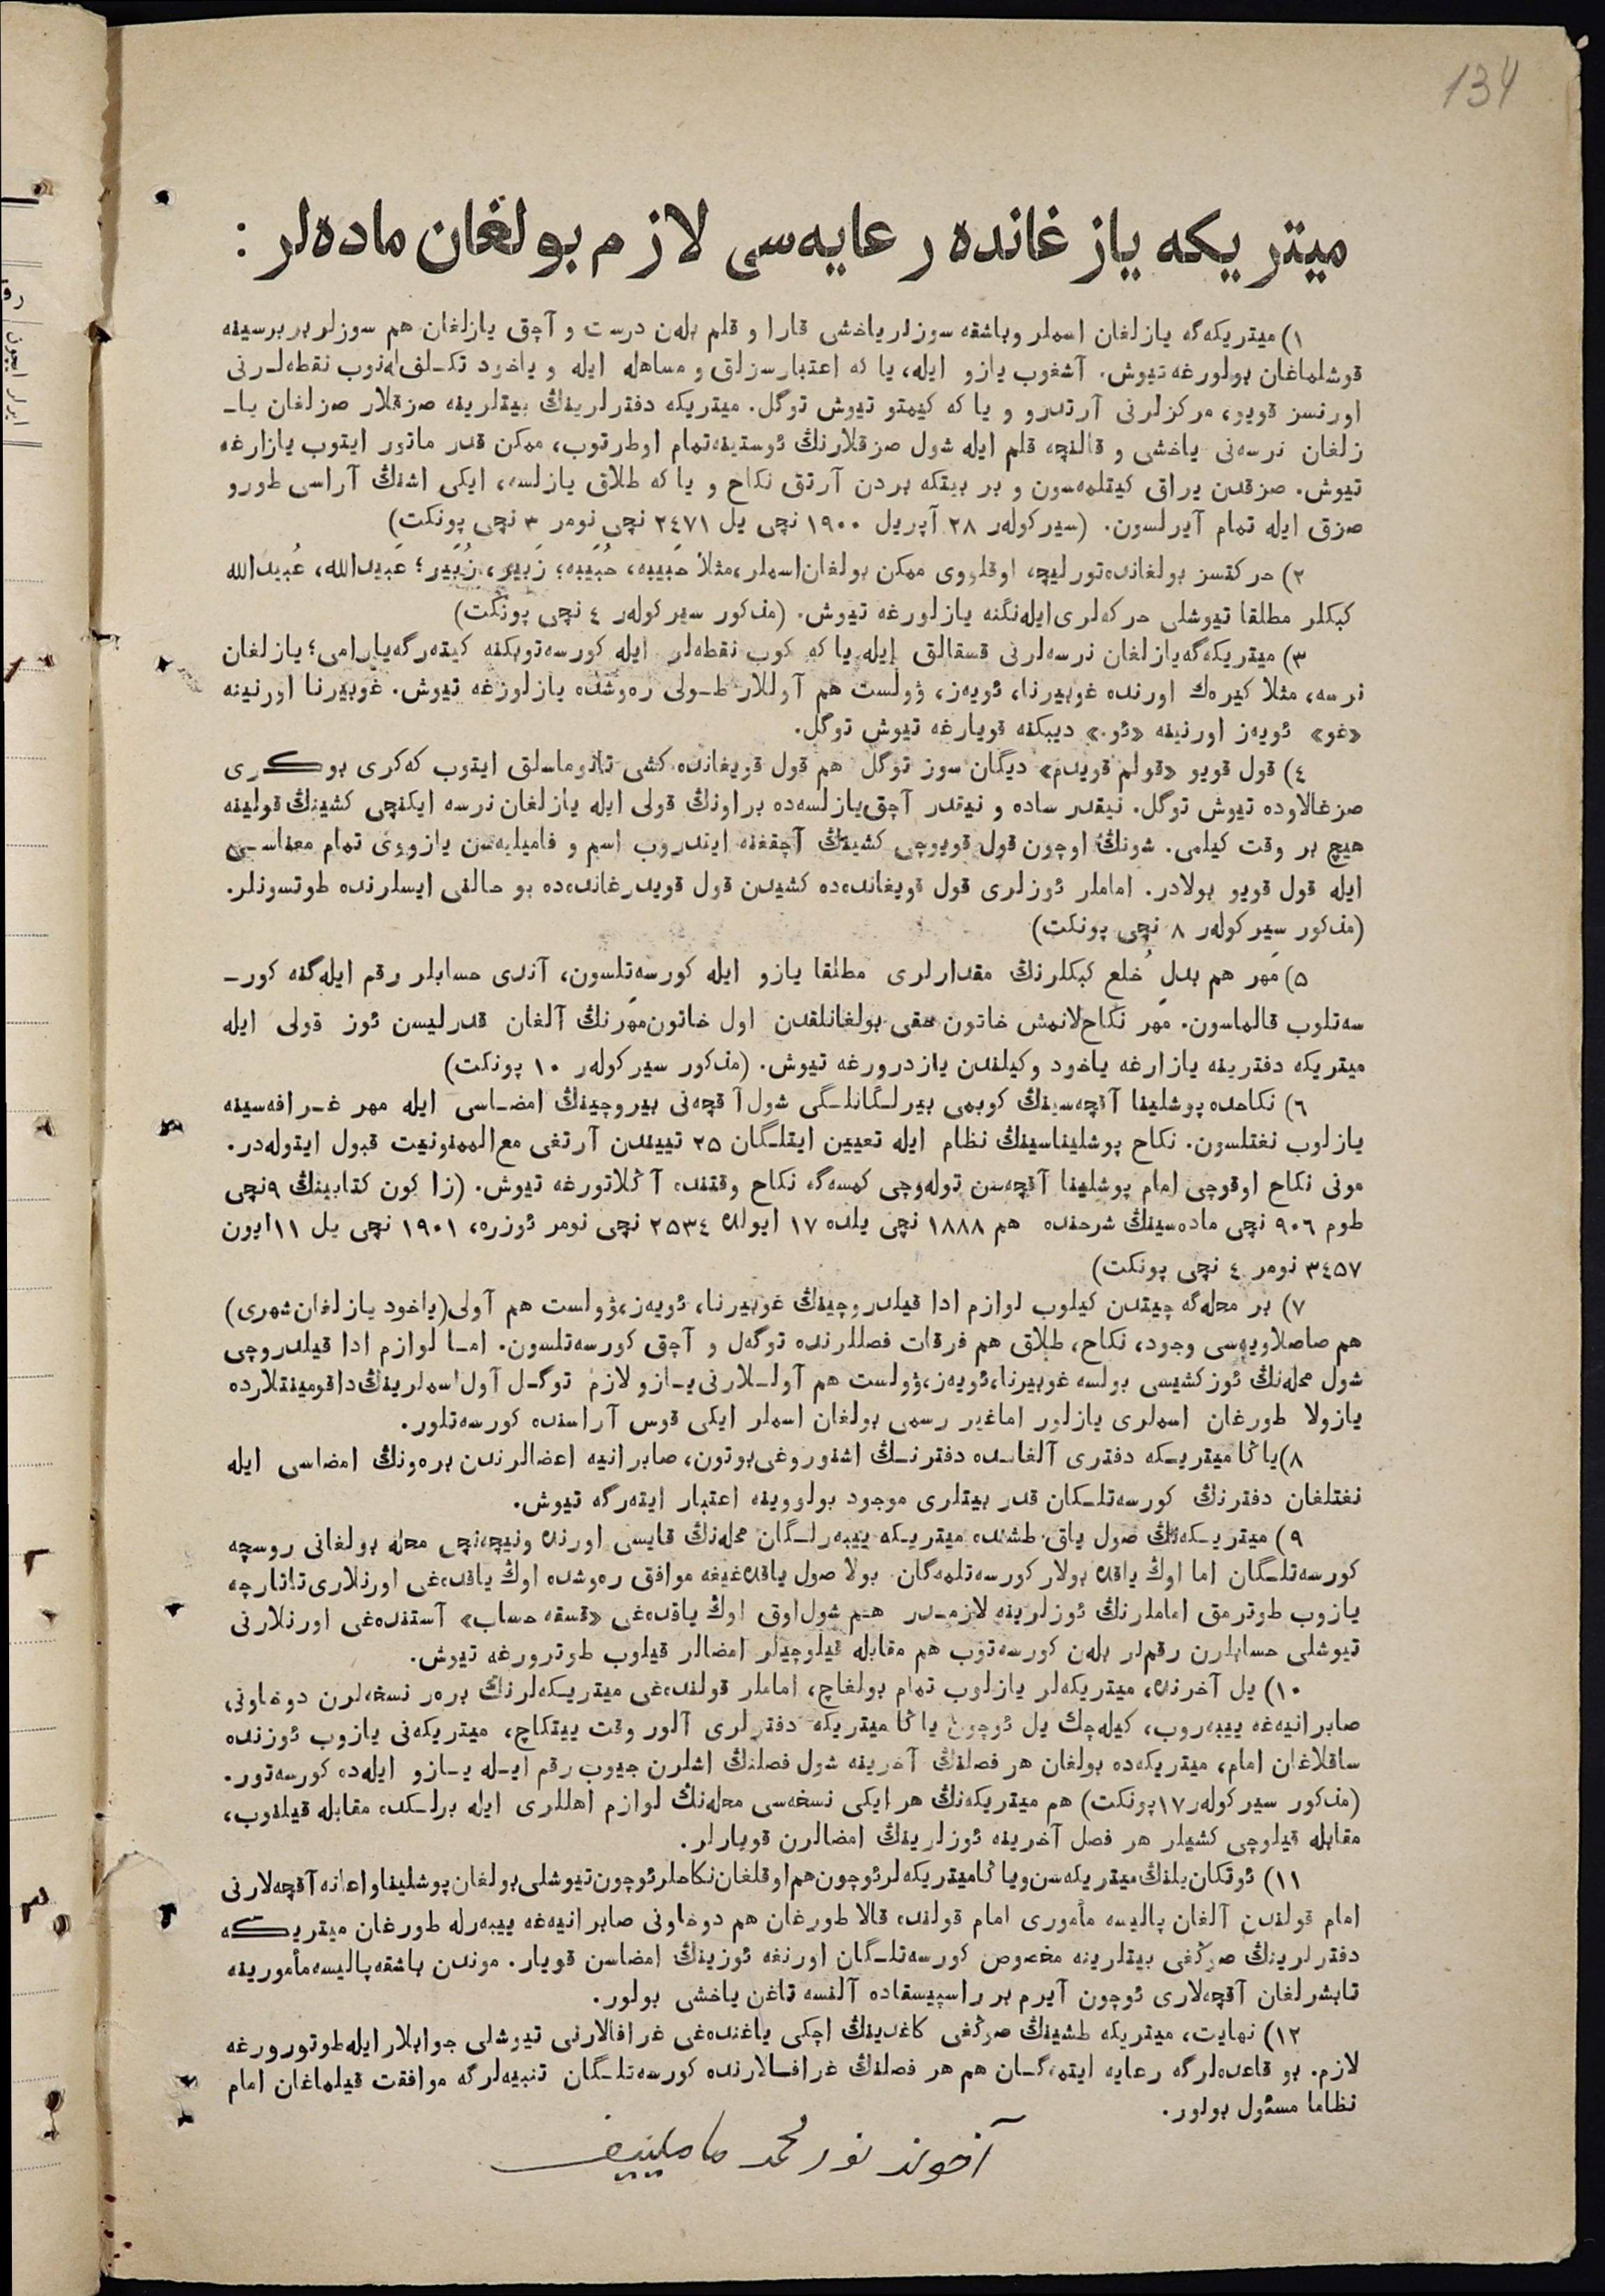 134
میتریکه یازغانده رعایه‌سی لازم بولغان ماده‌لر :
١) میتریکه‌گه یازلغان اسملر وباشقه سوزلر یاخشی قارا و قلم بله‌ن درست و آچق یازلغان هم سوزلر بربرسینه
قوشلماغان بولورغه تیوش. آشغوب یازو ایله، یا که اعتبارسزلق و مساهله ایله و یاخود تکـلف‌له‌نوب نقطه‌لـرنی
اورنسز قویو، مرکزلرنی آرتدرو و یا که کیمتو تیوش توگل. میتریکه دفترلرینڭ بیتلرینه صزقلار صزلغان یا‌ـ
زلغان نرسه‌نی یاخشی و قالنچه قلم ایله شول صزقلارنڭ ئوستینه‌تمام اوطرتوب، ممکن قدر ماتور ایتوب یازارغه
تیوش. صزقدن یراق کیتلمه‌سون و بر بیتکه بردن آرتق نکاح و یا که طلاق یازلسه، ایکی اشنڭ آراسی طورو
صزق ایله تمام آیرلسون. (سیرکوله‌ر ٢٨ آپریل ١٩٠٠ نچی یل ٢٤٧١ نچی نومر ٣ نچی پونکت)
٢) حرکتسز بولغانده‌تورلیچه اوقلووی ممکن بولغان‌اسملر،مثلا حَبیبه، حُبَیبه؛ زَبیر، زُبَیر؛ عَبیدالله، عُبیدالله
کبکلر مطلقا تیوشلی حرکه‌لری‌ایله‌نگنه یازلورغه تیوش. (مذکور سیرکوله‌ر ٤ نچی پونکت)
٣) میتریکه‌گه‌یازلغان نرسه‌لرنی قسقالق ایله یا که کوب نقطه‌لر ایله کورسه‌توبکنه کیته‌رگه‌یارامی؛ یازلغان
نرسه، مثلا کیره‌ك اورنده غوبیرنا، ئویه‌ز، ۋولست هم آوللار طـولی ره‌وشده یازلورغه تیوش. غوبیرنا اورنینه
«غو» ئویه‌ز اورنینه «ئو.» دیبکنه قویارغه تیوش توگل.
٤) قول قویو «قولم قویدم» دیگان سوز توگل هم قول قویغانده کشی تانوماسلق ایتوب که‌کری بوکـری
صزغالاوده تیوش توگل. نیقدر ساده و نیقدر آچق‌یازلسه‌ده براونڭ قولی ایله یازلغان نرسه ایکنچی کشینڭ قولینه
هیچ بر وقت کیلمی. شونڭ اوچون قول قویوچی کشینڭ آچقغنه ایندروب اسم و فامیلیه‌سن یازووی تمام معناسـی
ایله قول قویو بولادر. اماملر ئوزلری قول قویغانده‌ده کشیدن قول قویدرغانده‌ده بو حالنی ایسلرنده طوتسونلر.
(مذکور سیرکوله‌ر ٨ نچی پونکت)
٥) مَهر هم بدلِ خُلع کبکلرنڭ مقدارلری مطلقا یازو ایله کورسه‌تلسون، آندی حسابلر رقم ایله‌گنه کورـ
سه‌تلوب قالماسون. مَهر نکاح‌لانمش خاتون حقی بولغانلقدن اول خاتون‌مهرنڭ آلغان قدرلیسن ئوز قولی ایله
میتریکه دفترینه یازارغه یاخود وکیلندن یازدرورغه تیوش. (مذکور سیرکوله‌ر ١٠ پونکت)
٦) نکاحده پوشلینا آقچه‌سینڭ کوبمی بیرلـگانلـگی شول آقچه‌نی بیروچینڭ امضـاسی ایله مهر غـرافه‌سینه
یازلوب نغتلسون. نکاح پوشلیناسینڭ نظام ایله تعیین ایتلـگان ٢٥ تیینندن آرتغی مع‌الممنونیت قبول ایتوله‌در.
مونی نکاح اوقوچی امام پوشلینا آقچه‌سن توله‌وچی کمسه‌گه نکاح وقتنده آڭلاتورغه تیوش. (زاکون کتابینڭ ٩نچی
طوم ٩٠٦ نچی ماده‌سینڭ شرحنده هم ١٨٨٨ نچی یلده ١٧ ایولده ٢٥٣٤ نچی نومر ئوزره، ١٩٠١ نچی یل ١١ایون
٣٤٥٧ نومر ٤ نچی پونکت)
٧) بر محله‌گه چیتدن کیلوب لوازم ادا قیلدروچینڭ غوبیرنا، ئویه‌ز،ۋولست هم آولی(یاخود یازلغان‌شهری)
هم صاصلاویه‌سی وجود، نکاح، طلاق هم فرقات فصللرنده توگه‌ل و آچق کورسه‌تلسون. امـا لوازم ادا قیلدروچی
شول محله‌نڭ ئوزکشیسی بولسه غوبیرنا،ئویه‌ز،ۋولست هم آولـلارنی‌یـازو لازم توگـل آول‌اسملرینڭ‌داقومینتلارده
یازولا طورغان اسملری یازلور اماغیر رسمی بولغان اسملر ایکی قوس آراسنده کورسه‌تلور.
٨)یاڭامیتریـکه دفتری آلغانـده دفترنـڭ اشنوروغی‌بوتون، صابرانیه اعضالرندن بره‌ونڭ امضاسی ایله
نغتلغان دفترنڭ کورسه‌تلـکان قدر بیتلری موجود بولووینه اعتبار ایته‌رگه تیوش.
٩) میتریـکه‌نڭ صول یاق طشنده میتریـکه ییبه‌رلـگان محله‌نڭ قایسی اورنده ونیچه‌نچی محله بولغانی روسچه
کورسه‌تلـگان اما اوڭ یاقده بولار کورسه‌تلمه‌گان. بولا صول یاقده‌غیغه موافق ره‌وشده اوڭ یاقده‌غی اورنلاری‌تاتارچه
یازوب طوترمق اماملرنڭ ئوزلرینه لازمـدر هم شول‌اوق اوڭ یاقده‌غی «قسقه حساب» آستنده‌غی اورنلارنی
تیوشلی حسابلرن رقم‌لر بله‌ن کورسه‌توب هم مقابله قیلوچیلر امضالر قیلوب طوترورغه تیوش.
١٠) یل آخرنده، میتریکه‌لر یازلوب تمام بولغاچ، اماملر قولنده‌غی میتریـکه‌لرنڭ بره‌ر نسخه‌لرن دوخاونی
صابرانیه‌غه ییبه‌روب، کیله‌چك یل ئوچون یاڭا میتریکه دفترلری آلور وقت ییتکاچ، میتریکه‌نی یازوب ئوزنده
ساقلاغان امام، میتریکه‌ده بولغان هر فصلنڭ آخرینه شول فصلنڭ اشلرن جیوب رقم ایـله یـازو ایله‌ده کورسه‌تور.
(مذکور سیرکوله‌ر١٧پونکت) هم میتریکه‌نڭ هر ایکی نسخه‌سی محله‌نڭ لوازم اهللری ایله برلـکده مقابله قیلنوب،
مقابله قیلوچی کشیلر هر فصل آخرینه ئوزلرینڭ امضالرن قویارلر.
١١) ئوتکان‌یلنڭ‌میتریکه‌سن‌ویاڭامیتریکه‌لرئوچون‌هم‌اوقلغان‌نکاحلرئوچون‌تیوشلی‌بولغان‌پوشلیناواعانه‌آقچه‌لارنی
امام قولندن آلغان پالیسه مأموری امام قولنده قالا طورغان هم دوخاونی صابرانیه‌غه ییبه‌رله طورغان میتریـکه
دفترلرینڭ صوڭغی بیتلرینه مخصوص کورسه‌تلـگان اورنغه ئوزینڭ امضاسن قویار. موندن باشقه‌پالیسه‌مأمورینه
تابشرلغان آقچه‌لاری ئوچون آیرم بر راسپیسقاده آلنسه تاغن یاخشی بولور.
١٢) نهایت، میتریکه طشینڭ صوڭغی کاغدینڭ اچکی یاغنده‌غی غرافالارنی تیوشلی جوابلارایله‌طوتورورغه
لازم. بو قاعده‌لرگه رعایه ایتمه‌گـان هم هر فصلنڭ غرافـالارنده کورسه‌تلـگان تنبیه‌لرگه موافقت قیلماغان امام
نظاما مسئول بولور.
آخوند نورمحمد ماملییف